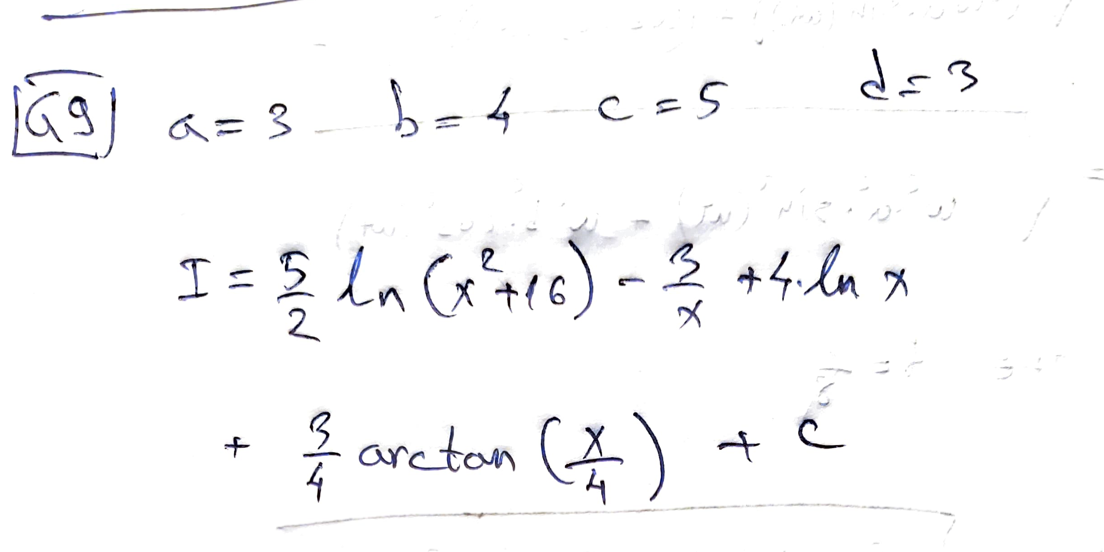 G9 a = 3 b = 4 c = 5 d = 3
I = 5/2 ln (x²+16) - 3/x + 4. ln x
+ 3/4 arctan (x/4) + c